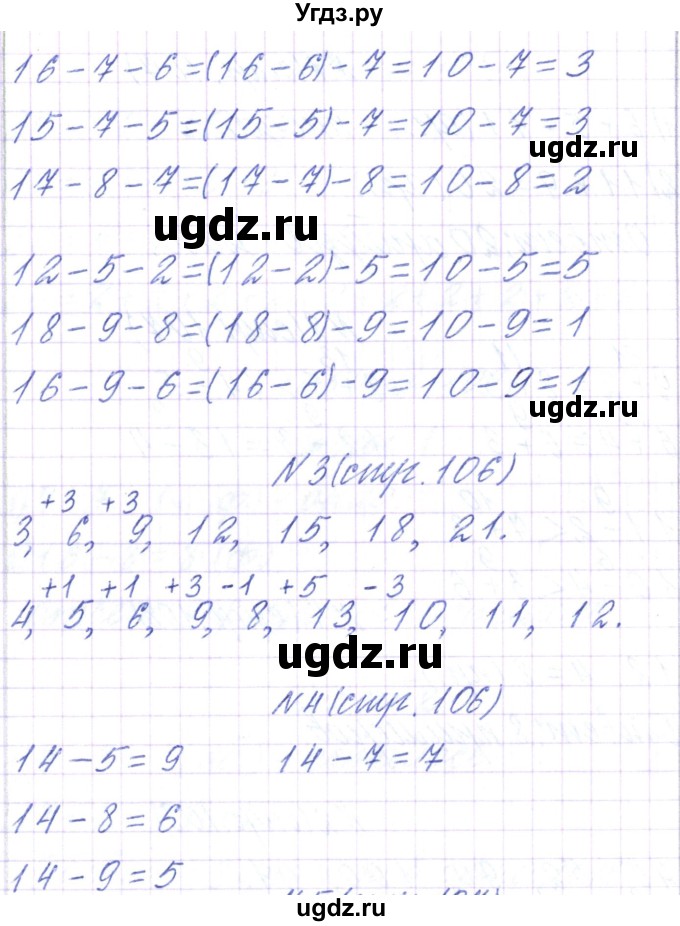 Угдз.ру
16-7-6=(16-6)-7=10-7=3
15-7-5=(15-5)-7=10-7=3
ugdz.ru
17-8-7=(17-7)-8=10-8=2
ugdz.ru
12-5-2=(12-2)-5=10-5=5
18-9-8=(18-8)-9=10-9=1
16-9-6=(16-6)-9=10-9=1
ugdz.ru
N3(стр. 106)
+3 +3
3, 6, 9, 12, 15, 18, 21.
+1 +1 +3 -1 +5 -3
4, 5, 6, 9, 8, 13, 10, 11, 12.
ugdz.ru
N4(стр. 106)
14-5=9 14-7=7
14-8=6
14-9=5
ugdz.ru